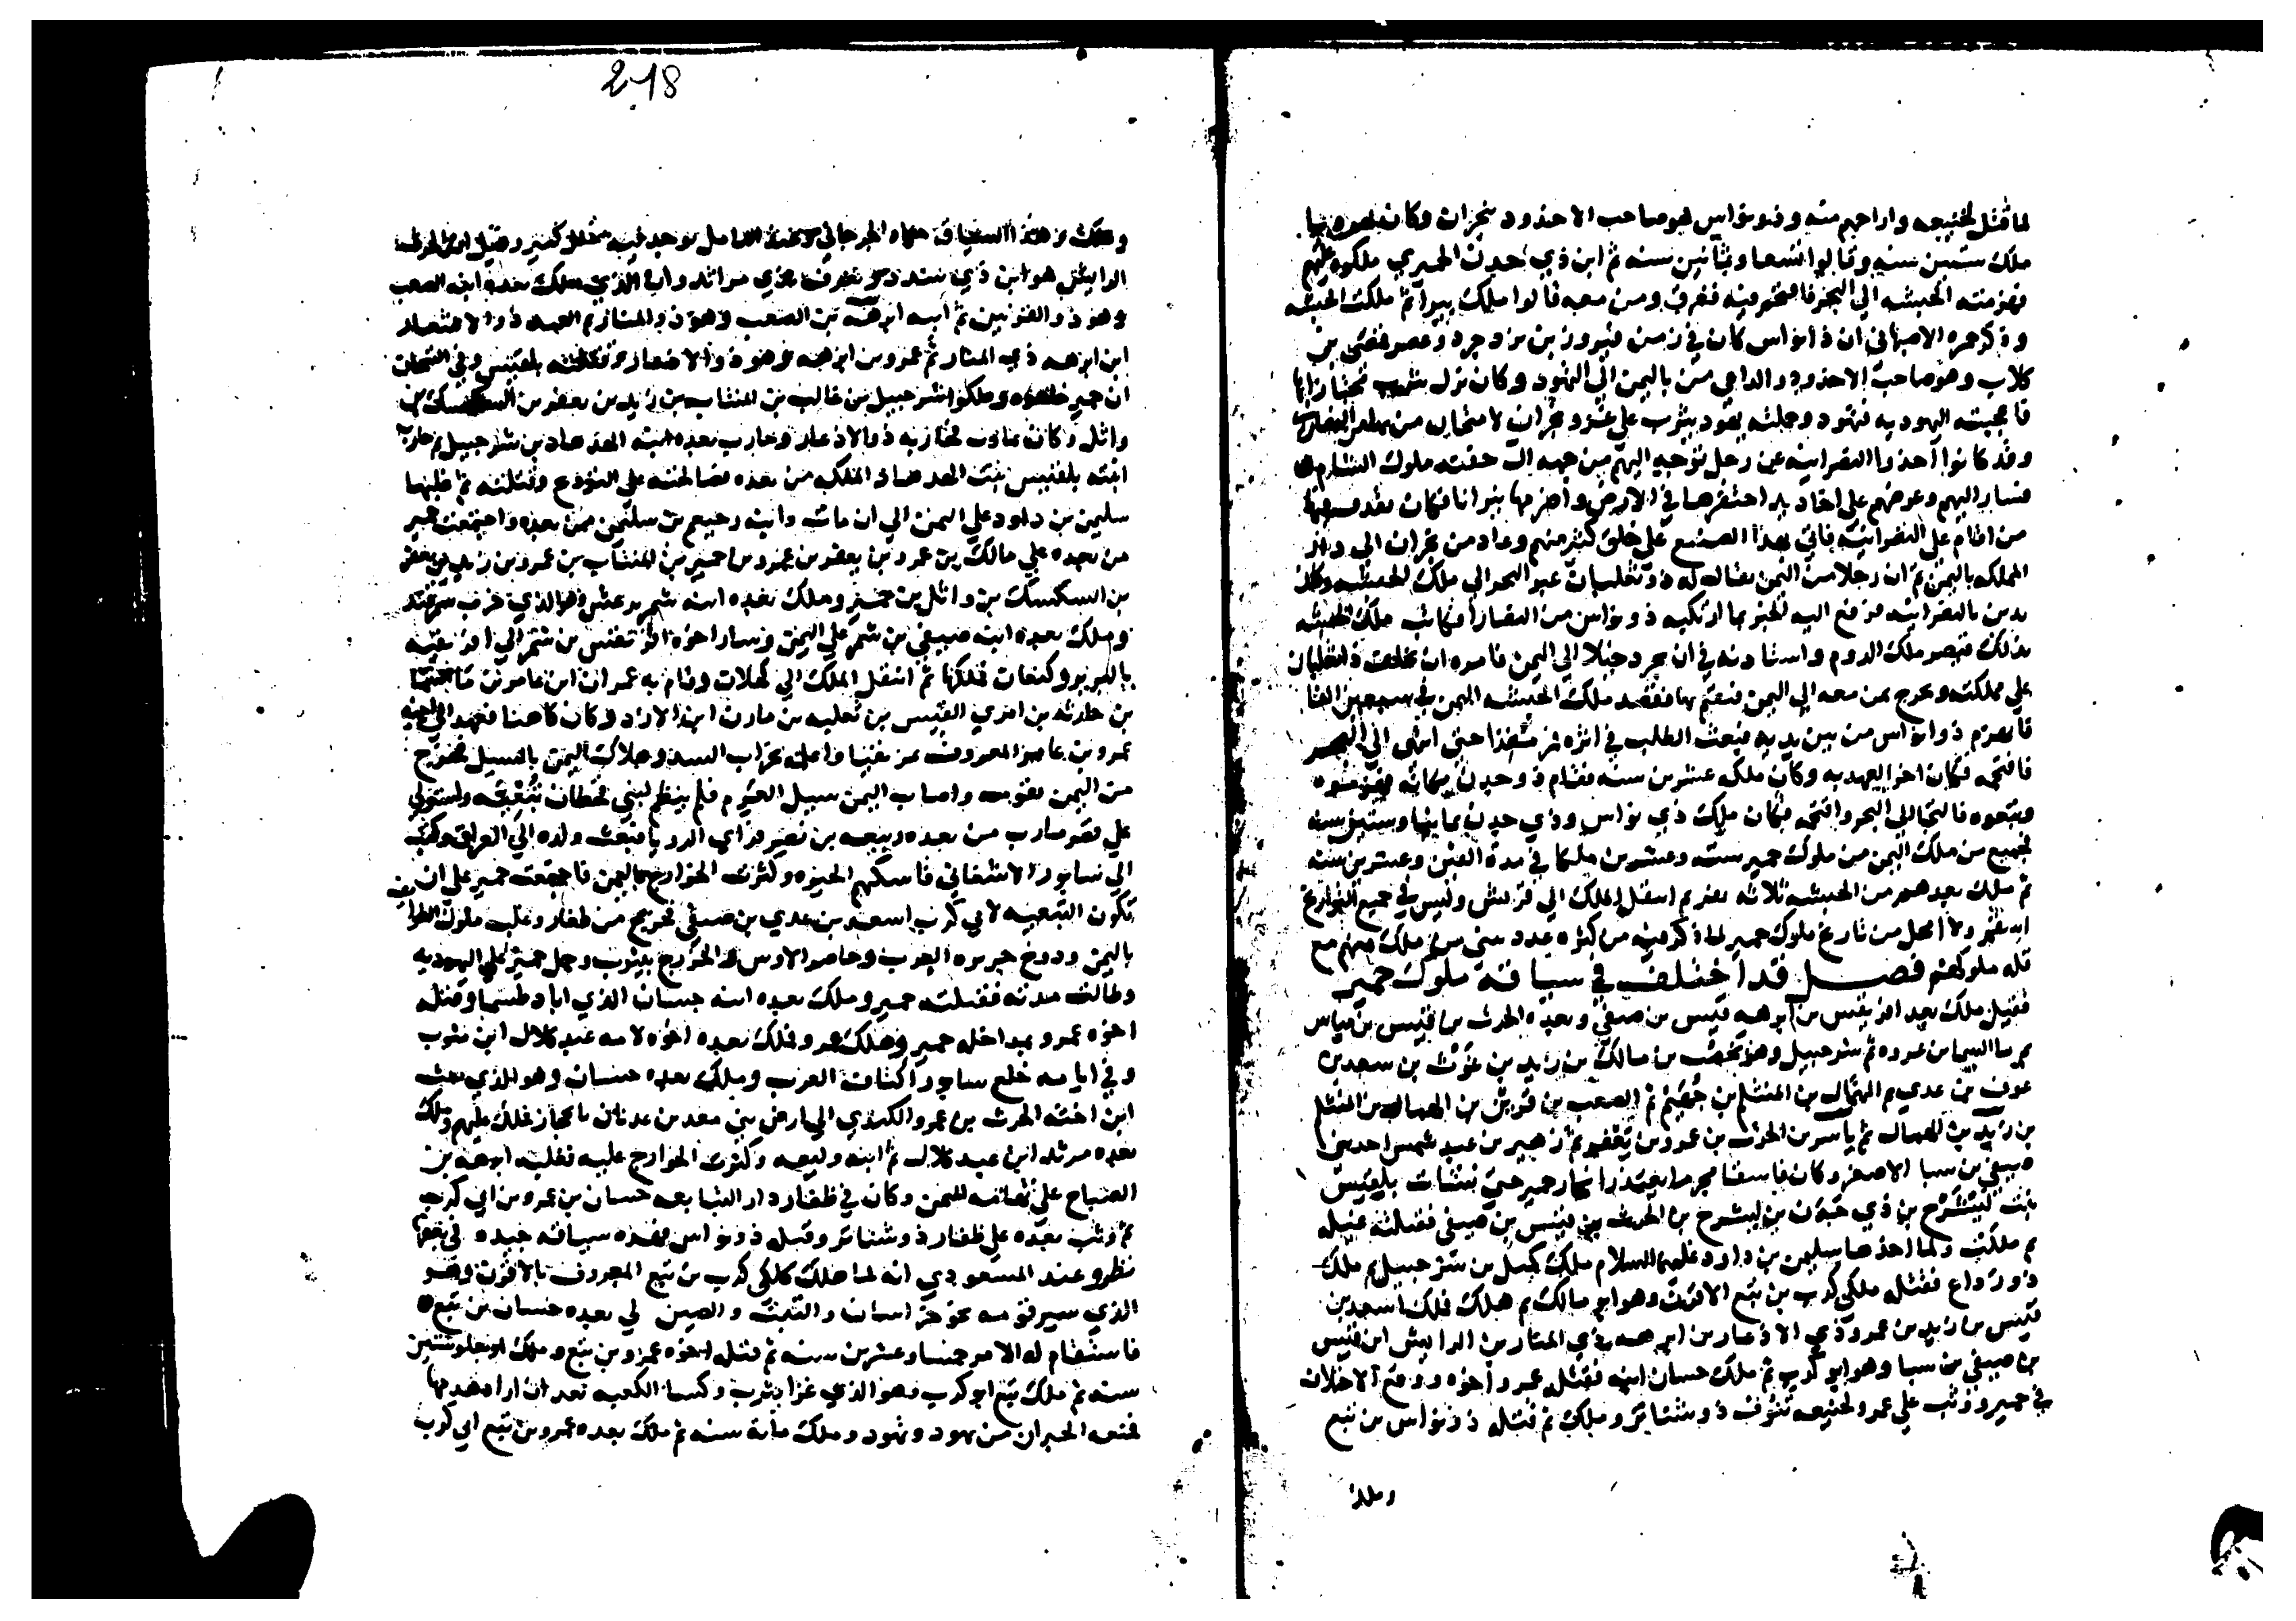 لما قتل لخنيعه واراحهم منه وذونواس هو صاحب الاخدود بنجران وكان
ملك ستين سنه وقالوا تسعا وثمانين سنه ثم ابن ذي جدن الحميري ملكوه عليهم
فهزمته الحبشه الي البحر فاقتحم فيه فغرق ومن معه قالوا ملك يسيرا ثم ملكت الحبشه
وذكر حمزه الاصبهاني ان ذا نواس كان في زمن فيروز بن يزدجرد وعصر قصي بن
كلاب وهو صاحب الاخدود والداعي من باليمن الي التهود وكان نزل يثرب مجتازا بها
فاعجبته اليهوديه فتهود وحملته يهود يثرب علي غزو نجران لامتحان من بها من النصاري
وقد كانوا اخذوا النصرانيه عن رجل توجه اليهم من جهه ال جفنه ملوك الشام
فسار اليهم وعرضهم علي اخاديد احتفرها في الارض واضرمها نيرانا فكان يقذف فيها
من اقام علي النصرانيه فاتي بهذا الصنيع علي خلق كثير منهم وعاد من نجران الي دار
المملكه باليمن ثم ان رجلا من اليمن يقال له ذو ثعلبان عبر البحر الي ملك الحبشه وكان
يدين بالنصرانيه فرفع اليه الخبر بما ارتكبه ذو نواس من النصاري فكاتب ملك الحبشه
بذلك قيصر ملك الروم واستاذنه في ان يجرد خيلا الي اليمن فامره ان يخلف ذا ثعلبان
علي مملكته ويخرج بمن معه الي اليمن فيقيم بها فقصد ملك الحبشه اليمن في سبعين الفا
فانهزم ذو انواس من بين يديه فبعث الطلب في اثره فمر منفذا حتي انتهي الي البحر
فاقتحمه فكان اخر العهد به وكان ملكه عشرين سنه فقام ذو جدن مكانه فهزموه
وتبعوه فالتجا الي البحر واقتحمه فكان ملك ذي نواس وذي جدن ثمانيا وستين سنه
فجميع من ملك اليمن من ملوك حمير سته وعشرون ملكا في مدة الفين وعشرين سنه
ثم ملك بعدهم من الحبشه ثلاثه نفر ثم انتقل الملك الي قريش وليس في جميع التواريخ
اسقم ولا اخل من تاريخ ملوك حمير لما ذكر فيه من كثره عدد سني من ملك منهم مع
قله ملوكهم فصل قد اختلف في سياقة ملوك حمير
فقيل ملك بعد افريقيس بن ابرهه قيس بن صيفي وبعده الحرث بن قيس بن مياس
ثم ما السما بن عروه ثم شرحبيل وهو يحصب بن مالك بن زيد بن غوث بن سعد بن
عوف بن عدي ثم الهمال بن المنتلم بن جهيم ثم الصعب بن قرين بن الهمال بن المنتلم
بن زيد بن الهمال ثم ياسر بن الحرث بن عمرو بن يعفر ثم زهير بن عبد شمس احد بني
صيفي بن سبا الاصغر وكان فاسقا مجرما يفتض ابكار حمير حتي نشات بلقيس
بنت ليشرح بن ذي جدن بن ليشرح بن الحرث بن قيس بن صيفي فقتلته غيله
ثم ملكت ولما اخذها سليمن بن داود عليهما السلام ملك لميل بن شرحبيل ثم ملك
ذو رداع فقتله ملكي كرب بن تبع الاقرن وهو ابو مالك ثم هلك فملك اسعد بن
قيس بن زيد بن عمرو ذي الاذعار بن ابرهه ذي المنار بن الرايش ابن قيس
بن صيفي بن سبا وهو ابو كرب ثم ملك حسان ابنه فقتله عمرو اخوه ووقع الاختلاف
في حمير ووثب علي عمرو لخنيعه تنوف ذو شناتر وملك ثم قتله ذو نواس بن تبع
وملك
218
وملك وهذا السياق
الرايش هو ابن ذي سدد ويعرف بذي مراثد وان الذي ملك بعده ابنه الصعب
وهو ذو القرنين ثم ابنه ابرهه بن الصعب وهو ذو المنار ثم العبد ذو الاذعار
ابن ابرهه ذي المنار ثم عمرو بن ابرهه وهو ذو الاذعار وقتلته بلقيس وفي التيجان
ان حمير خلعوه وملكوا شرحبيل بن غالب بن المنتاب بن زيد بن يعفر بن السكسك بن
واثل وكان بمارب فحاربه ذو الاذعار وحارب بعده ابنه الهدهاد بن شرحبيل ثم حارب
ابنته بلقيس بنت الهدهاد الملك من بعده فصالحته علي التزوج وقتلته ثم غلبها
سليمن بن داود علي اليمن الي ان مات وابنه رحبعم بن سليمن من بعده واجتمعت حمير
من بعده علي مالك بن عمرو بن يعفر بن عمرو بن حمير بن المنتاب بن عمرو بن زيد بن يعفر
بن السكسك بن واثل بن حمير وملك بعده ابنه شمر يرعش وهو الذي خرب سمرقند
وملك بعده ابنه صيفي بن شمر علي اليمن وسار اخوه افريقيس بن شمر الي افريقيه
بالبربر وكنعان فملكها ثم انتقل الملك الي كهلان وقام به عمران ابن عامر بن ماء السما
بن حارثه بن امري القيس بن ثعلبه بن مازن ابن الازد وكان كاهنا فعهد الي اخيه
عمرو بن عامر المعروف بمزيقيا واعلمه بخراب السد وهلاك اليمن بالسيل فخرج
من اليمن بقومه واصاب اليمن سيل العرم فلم ينظم لبني قحطان بعده واستولي
علي قصر مارب من بعده ربيعه بن نصر فراي الرويا فبعث ولده الي العراق وكتب
الي سابور الاشغاني فاسكنهم الحيره وكثرت الخوارج باليمن فاجتمعت حمير علي ان
تكون التبعيه لابي كرب اسعد بن عدي بن صيفي فخرج من ظفار وغلب ملوك الطوايف
باليمن ودوخ جزيره العرب وحاصر الاوس والخزرج بيثرب وحمل حمير علي اليهوديه
وطالت مدته فقتلته حمير وملك بعده ابنه حسان الذي اباد طسما وقتله
اخوه عمرو بمداخله حمير وهلك عمرو فملك بعده اخوه لامه عبد كلال ابن مثوب
وفي ايامه خلع سابور اكتاف العرب وملك بعده حسان وهو الذي بعث
ابن اخته الحرث بن عمرو الكندي الي ارض بني معد بن عدنان بالحجاز فملك عليهم وملك
بعده مرثد ابن عبد كلال ثم ابنه وليعه وكثرت الخوارج عليه فغلبه ابرهه بن
الصباح علي تهامه اليمن وكان في ظفار دار التبابعه حسان بن عمرو بن ابي كرب
ثم وثب بعده علي ظفار ذو شناتر وقتله ذو نواس فهذه سياقه جيده في بعضها
نظر وعند المسعودي انه لما هلك كلكي كرب بن تبع المعروف بالاقرن وهو
الذي سير قومه نحو خراسان والتبت والصين ولي بعده حسان بن تبع
فاستقام له الامر خمسا وعشرين سنه ثم قتله اخوه عمرو بن تبع وملك اربعا وستين
سنه ثم ملك تبع ابو كرب وهو الذي غزا يثرب وكسا الكعبه بعد ان اراد هدمها
فمنعه الحبران من يهود وتهود وملك مائة سنه ثم ملك بعده عمرو بن تبع ابي كرب